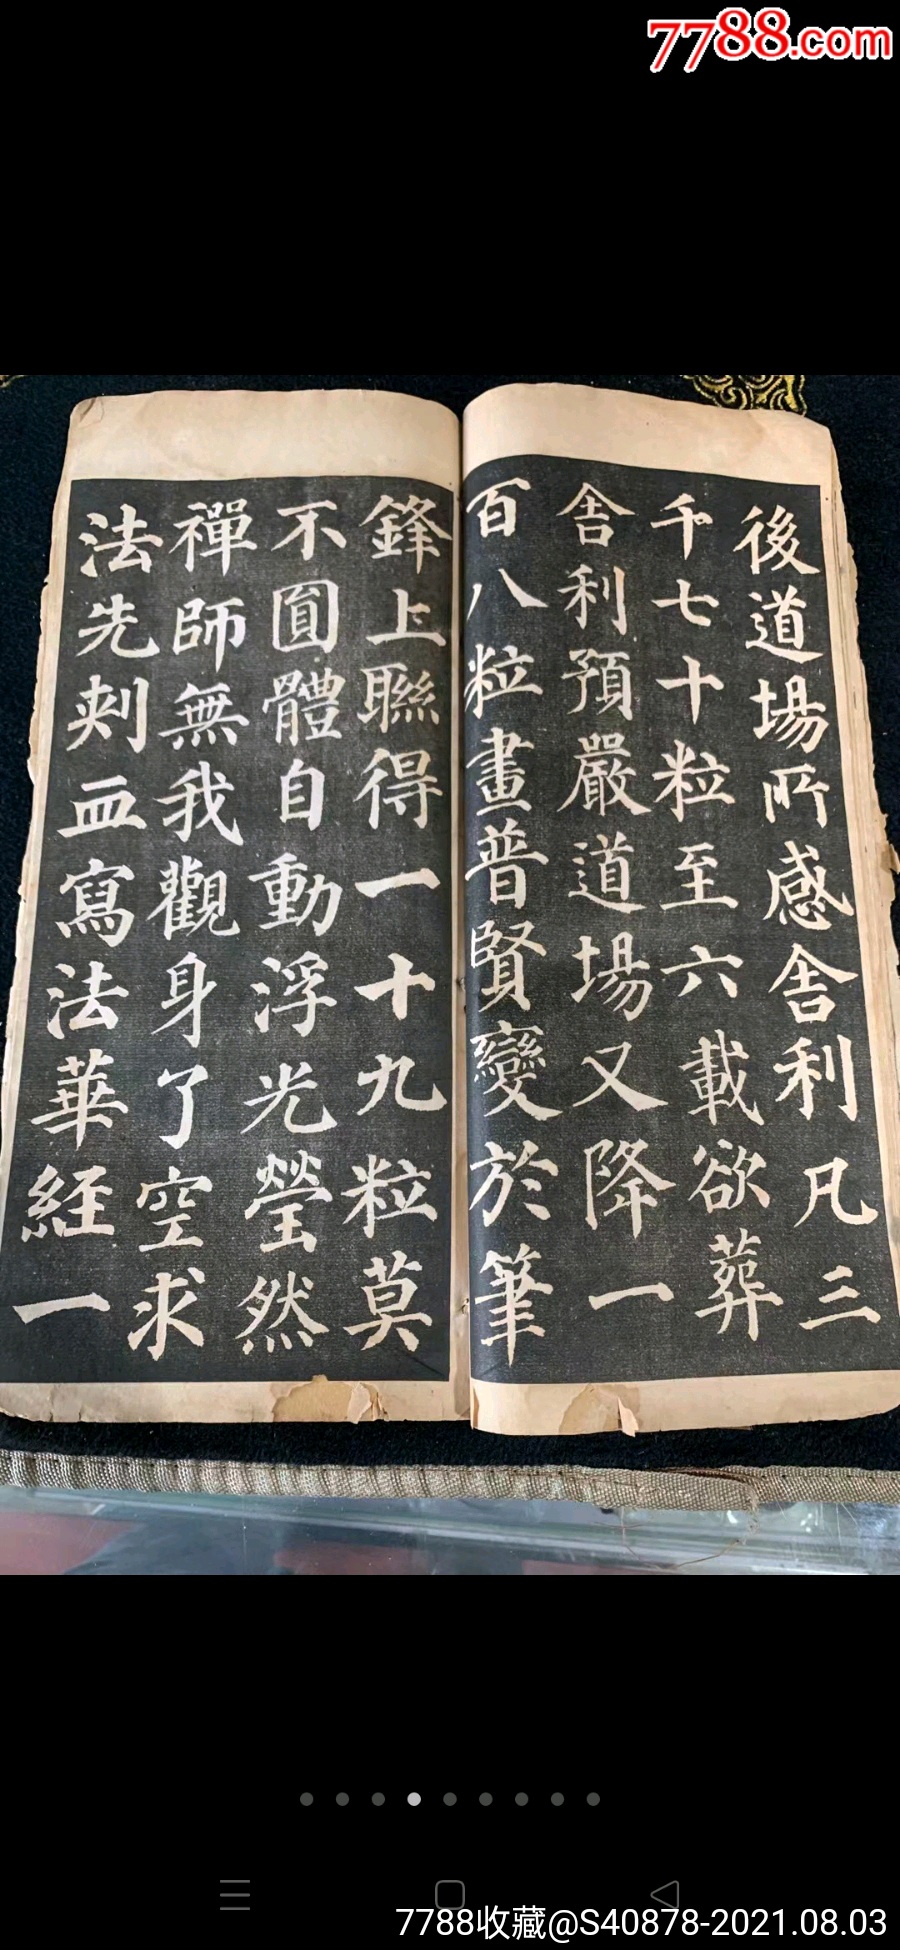 7788.com
後道場所感舍利凡三
千七十粒至六載欲葬
舍利預嚴道場又降一
百八粒畫普賢變於筆
鋒上聯得一十九粒莫
不圓體自動浮光瑩然
禪師無我觀身了空求
法先刾血寫法華經一
7788收藏@S40878-2021.08.03